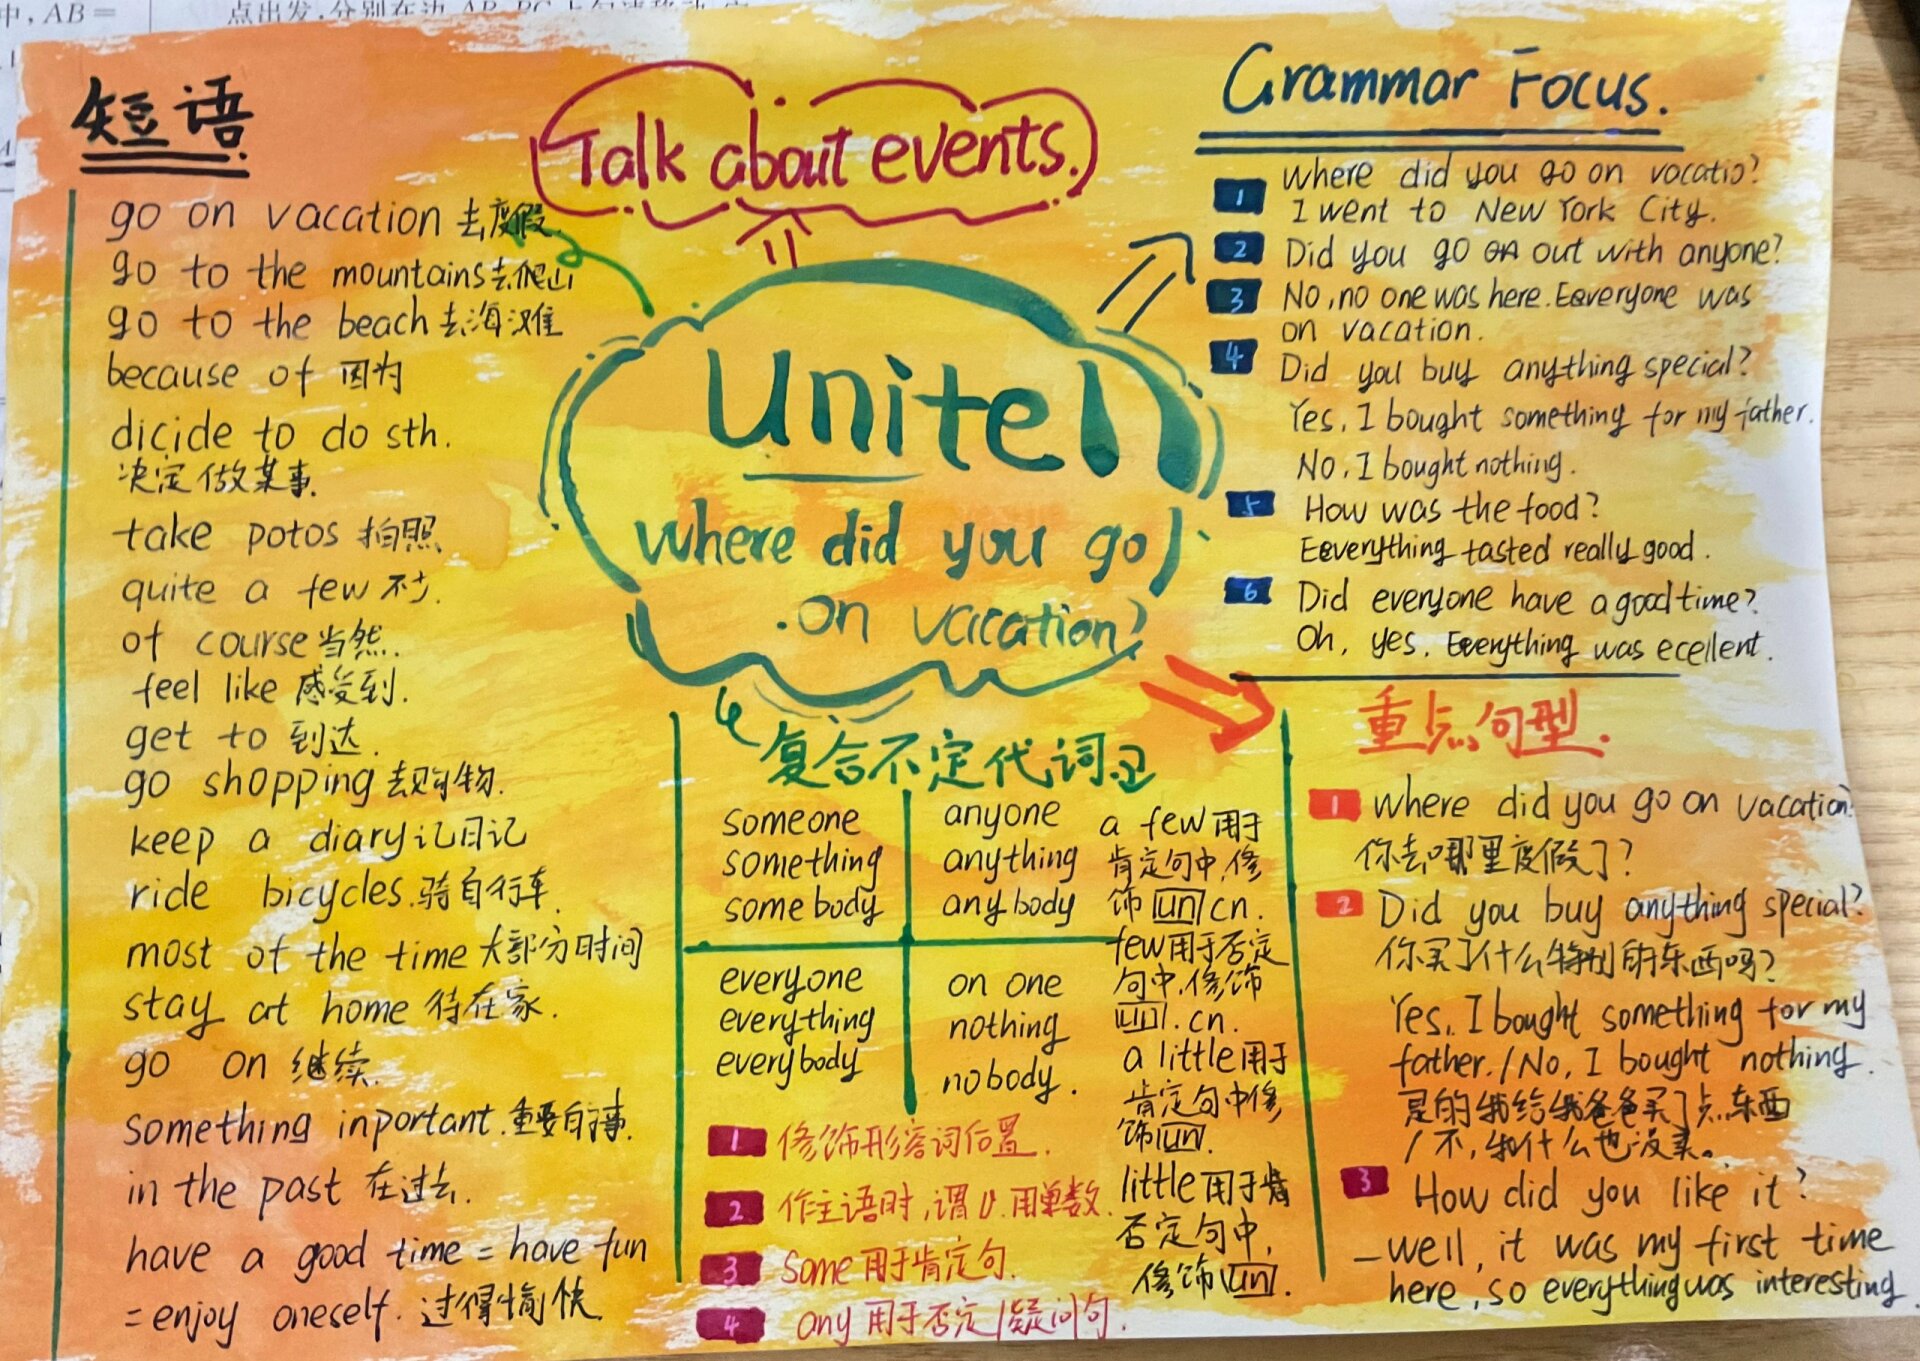 中, AB =
点出发,分别在边
短语
go on vacation 去度假.
go to the mountains去爬山
go to the beach 去海滩
because of 因为
dicide to do sth.
决定做某事.
take potos 拍照
quite a few 不少.
of course当然.
feel like 感受到.
get to 到达.
go shopping 去购物.
keep a diary记日记
ride bicycles.骑自行车.
most of the time 大部分时间
stay at home 待在家.
go on 继续.
something inportant.重要的事.
in the past 在过去.
have a good time = have fun
= enjoy oneself. 过得愉快
Talk about events.
Unite1
where did you go
on vacation?
Grammar Focus.
1 where did you go on vocatio?
I went to New York City.
2 Did you go on out with anyone?
3 No, no one was here. Eeveryone was
on vacation.
4 Did you buy anything special?
Yes, I bought something for my father.
No, I bought nothing.
5 How was the food?
Eeverything tasted really good.
6 Did everyone have a good time?
Oh, yes. Eeverything was ecellent.
复合不定代词.
someone
something
somebody
anyone
anything
anybody
everyone
everything
everybody
on one
nothing
nobody.
1 修饰形容词位置.
2 作主语时,谓V.用单数.
3 Some 用于肯定句.
4 any 用于否定/疑问句.
a few 用于
肯定句中,修
饰 un cn.
few用于否定
句中,修饰
un. cn.
a little用于
肯定句中修
饰un.
little用于肯
否定句中,
修饰un.
重点句型.
1 where did you go on vacation?
你去哪里度假了?
2 Did you buy anything special?
你买了什么特别的东西吗?
Yes, I bought something for my
father. / No, I bought nothing.
是的我给我爸爸买了点东西
/ 不,我什么也没买。
3 How did you like it?
– well, it was my first time
here, so everything was interesting.